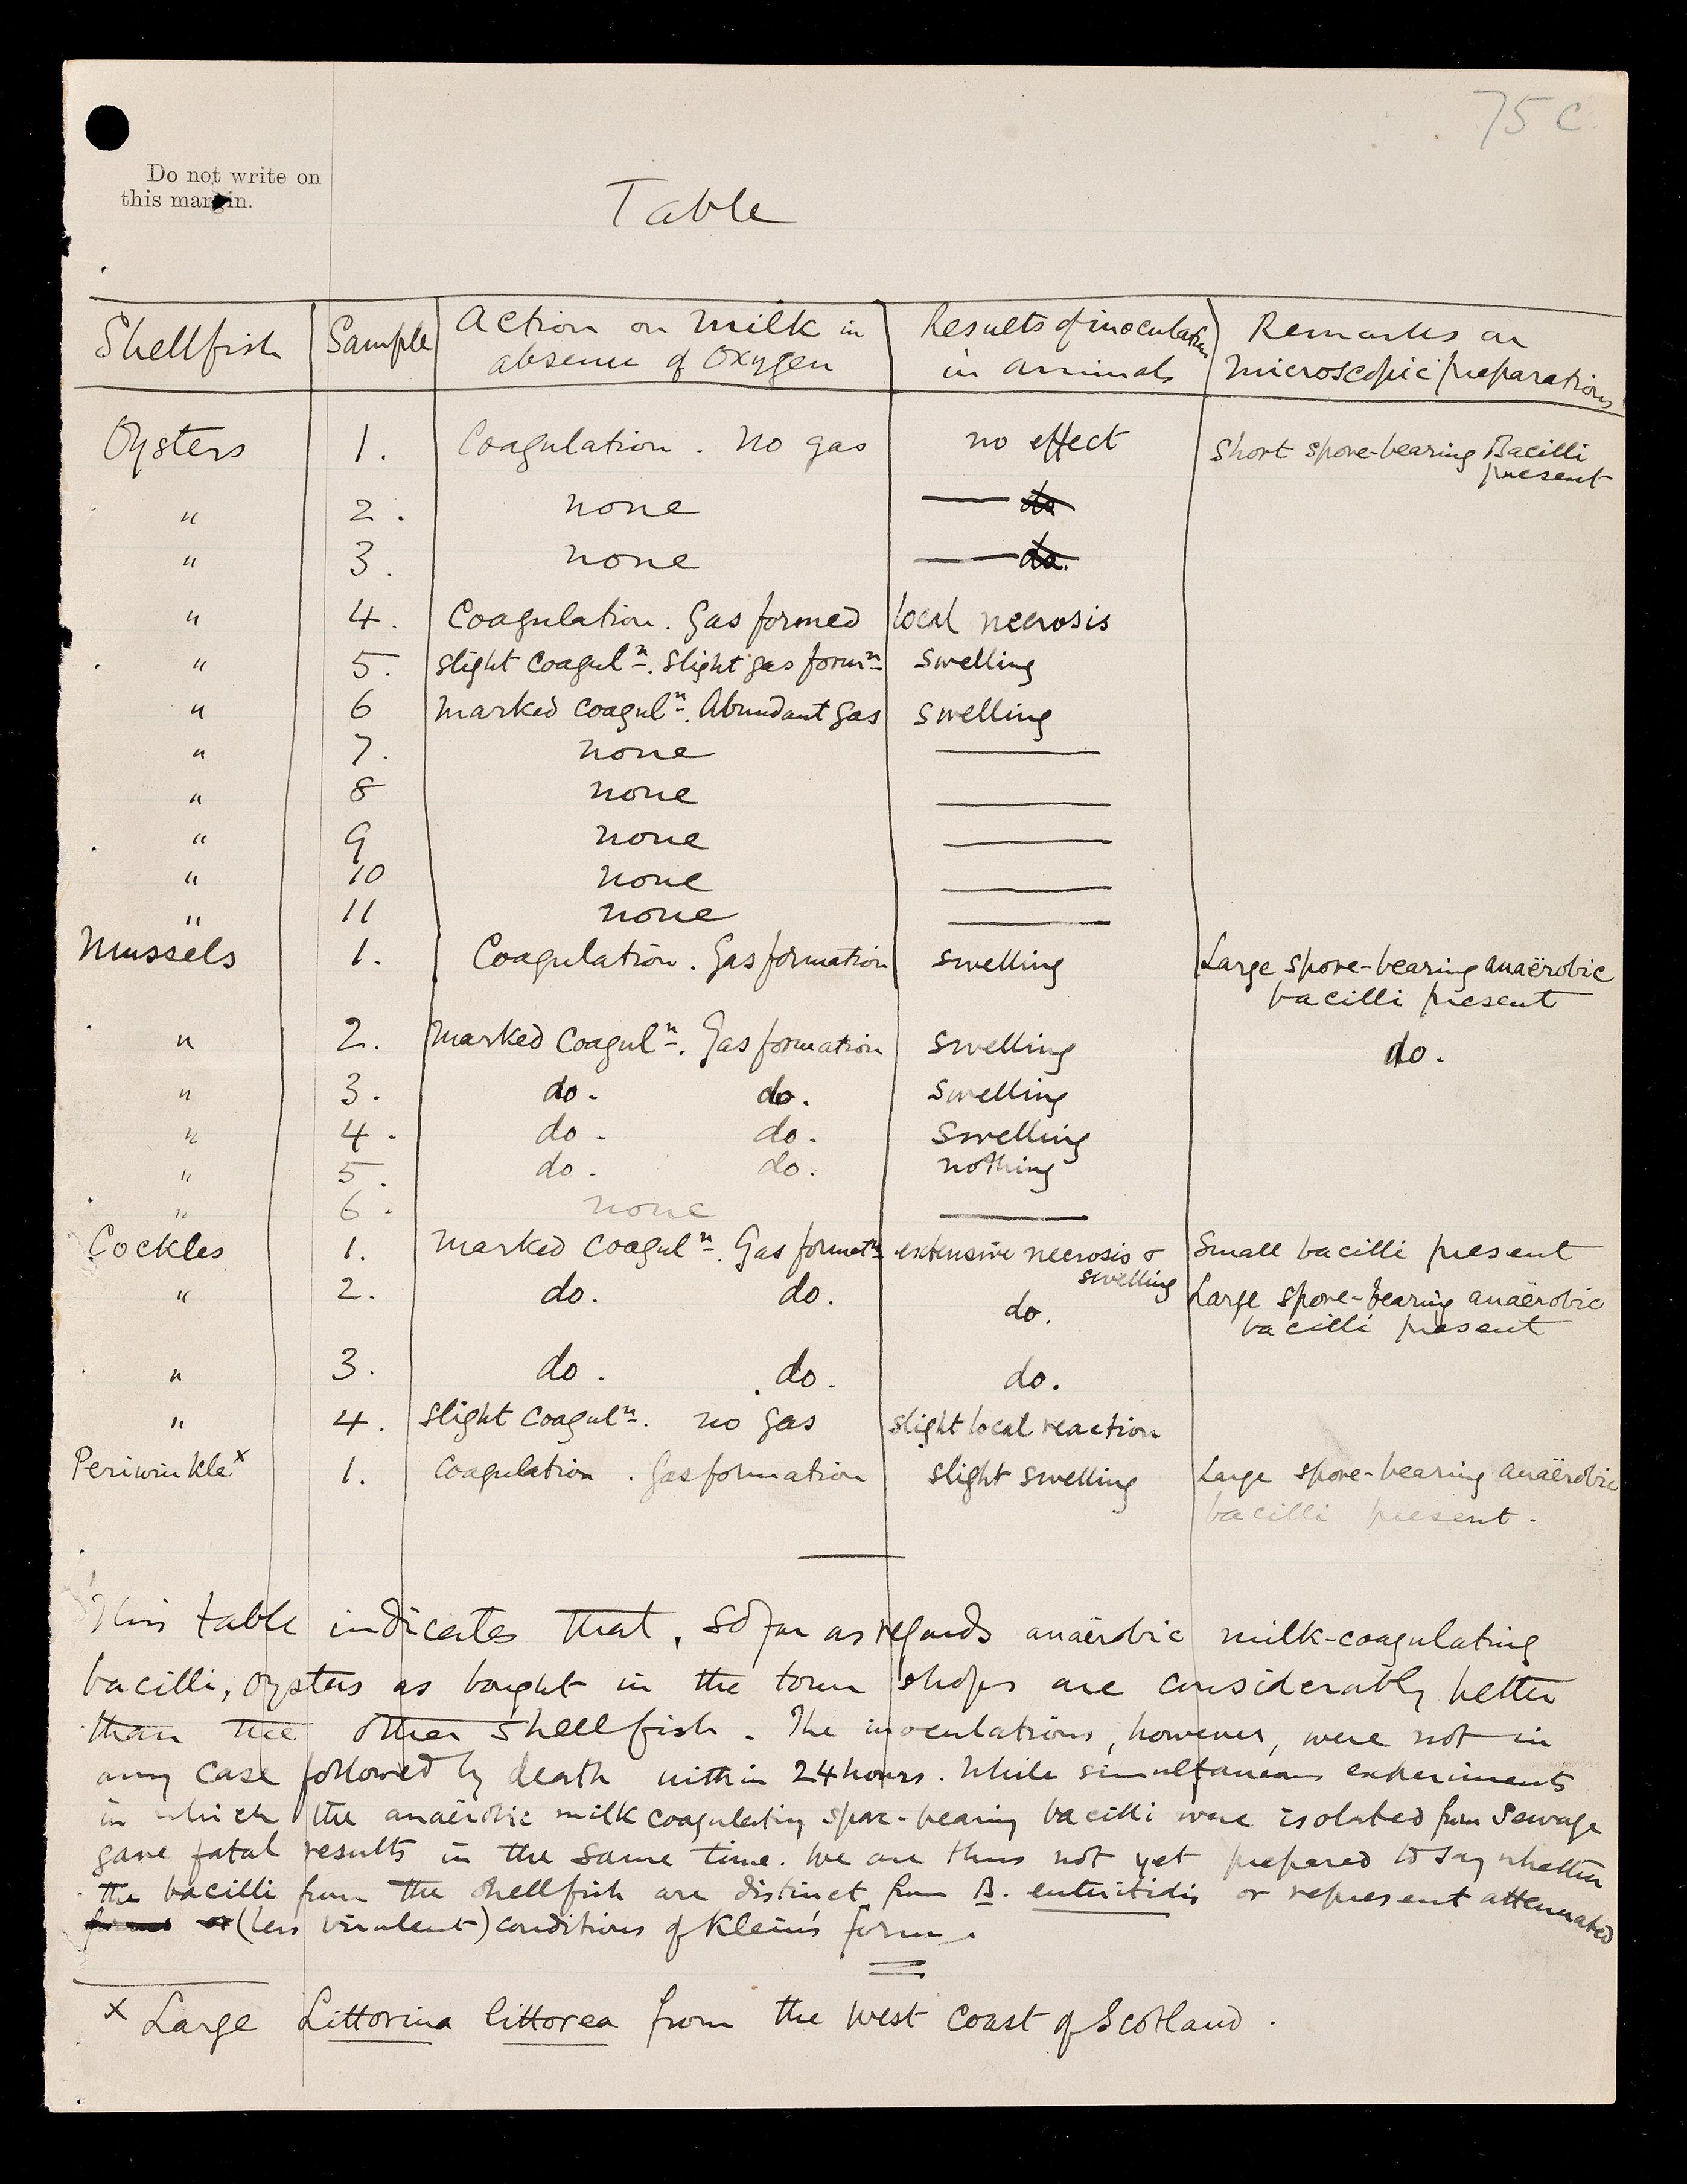 75 C
Do not write on
this margin.
Table
Shellfish Sample Action on Milk in Results of inoculation Remarks on
absence of Oxygen in animals microscopic preparations
Oysters 1. Coagulation. No gas no effect Short spore-bearing Bacilli
present
" 2. none —— do
" 3. none —— do.
" 4. Coagulation. Gas formed local necrosis
" 5. slight coagulⁿ. slight gas formⁿ swelling
" 6 marked coagulⁿ. Abundant gas swelling
" 7. none ——
" 8 none ——
" 9 none ——
" 10 none ——
" 11 none ——
Mussels 1. Coagulation. Gas formation swelling Large spore-bearing anaërobic
bacilli present
" 2. marked coagulⁿ. Gas formation swelling do.
" 3. do. do. swelling
" 4. do. do. swelling
" 5. do. do. nothing
" 6. none ——
Cockles 1. marked coagulⁿ. Gas formatⁿ extensive necrosis & Small bacilli present
swelling
" 2. do. do. do. Large spore-bearing anaërobic
bacilli present
" 3. do. do. do.
" 4. slight coagulⁿ. no gas slight local reaction
Periwinkle x 1. coagulation. Gas formation slight swelling Large spore-bearing anaërobic
bacilli present.
This table indicates that, so far as regards anaërobic milk-coagulating
bacilli, oysters as bought in the town shops are considerably better
than the other shellfish. The inoculations, however, were not in
any case followed by death within 24 hours. While simultaneous experiments
in which the anaërobic milk coagulating spore-bearing bacilli were isolated from sewage
gave fatal results in the same time. We are thus not yet prepared to say whether
the bacilli from the shellfish are distinct from B. enteritidis or represent attenuated
forms or (less virulent) conditions of Klein's form.
x Large Littorina littorea from the West Coast of Scotland.